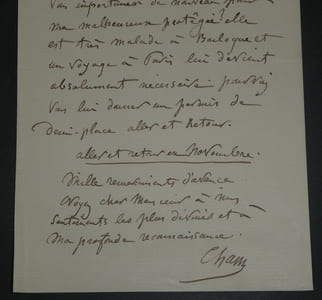 vous importuner de nouveau pour
ma malheureuse protégée elle
est très malade à Boulogne et
un voyage à Paris lui devient
absolument nécessaire pourriez
vous lui donner un permis de
Demi-place aller et Retour.
aller et retour en Novembre.
Mille remerciments d'avance
croyez cher Monsieur à mes
sentiments les plus dévoués et à
ma profonde reconnaissance.
Cham